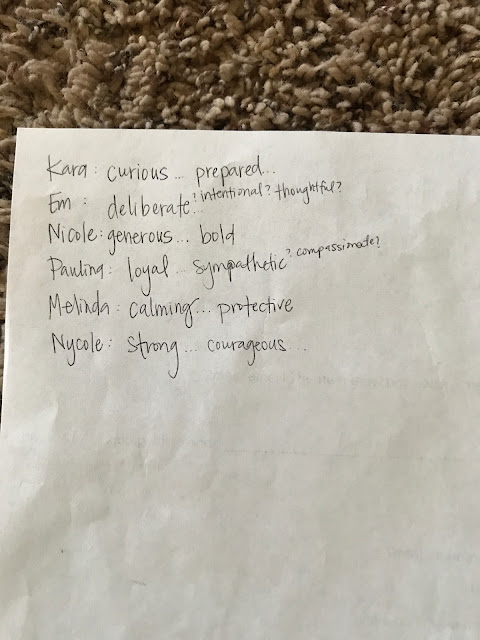 Kara: curious... prepared...
Em: deliberate...? intentional? thoughtful?
Nicole: generous... bold
Pauling: loyal... sympathetic? compassionate?
Melinda: calming... protective
Nycole: strong... courageous...